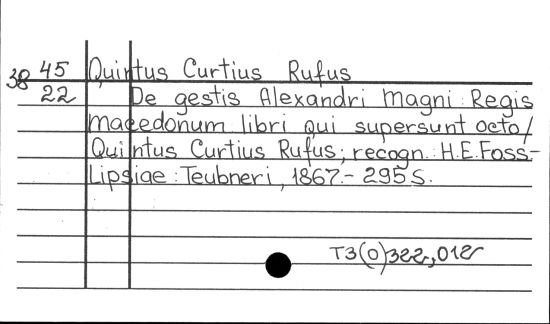 38 45 Quintus Curtius Rufus
22 De gestis Alexandri Magni Regis
Macedonum libri qui supersunt octo/
Quintus Curtius Rufus; recogn. H.E.Foss.-
Lipsiae: Teubneri, 1867.- 295 S.
T3(0)322,012